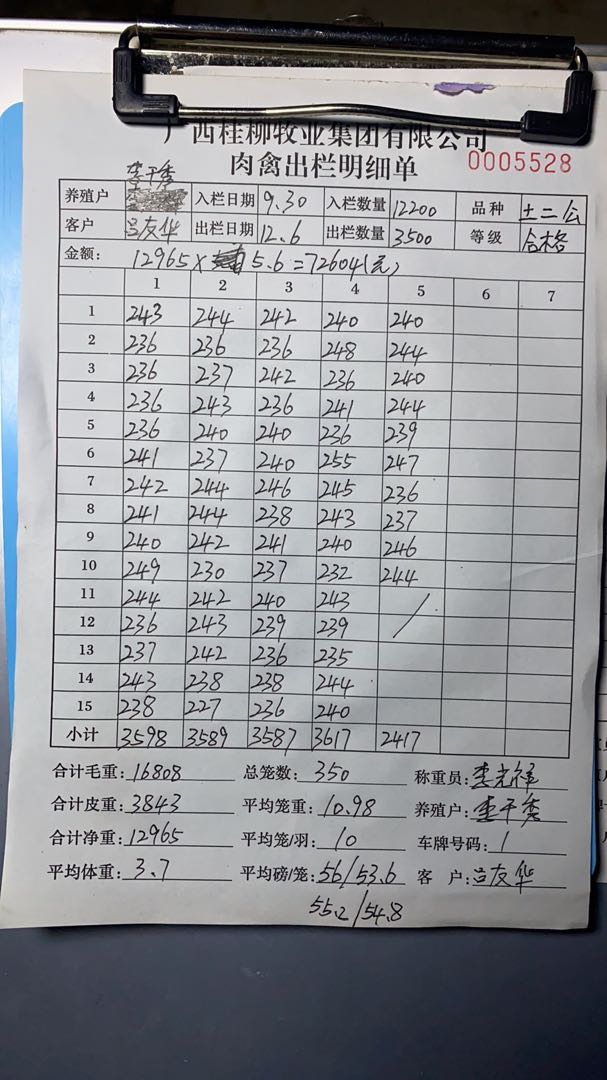 广西桂柳牧业集团有限公司
肉禽出栏明细单 0005528
李干秀
养殖户 入栏日期 9.30 入栏数量 12200 品种 土二公
客户 吕友华 出栏日期 12.6 出栏数量 3500 等级 合格
金额: 12965× 5.6=72604(元)
1 2 3 4 5 6 7
1 243 244 242 240 240
2 236 236 236 248 244
3 236 237 242 236 240
4 236 243 236 241 244
5 236 240 240 236 239
6 241 237 240 255 247
7 242 244 246 245 236
8 241 244 238 243 237
9 240 242 241 240 246
10 249 230 237 232 244
11 244 242 240 243
12 236 243 239 239
13 237 242 236 235
14 243 238 238 244
15 238 227 236 240
小计 3598 3589 3587 3617 2417
合计毛重: 16808 总笼数: 350 称重员: 李光祥
合计皮重: 3843 平均笼重: 10.98 养殖户: 李干秀
合计净重: 12965 平均笼/羽: 10 车牌号码: 1
平均体重: 3.7 平均磅/笼: 56/53.6 客 户: 吕友华
55.2/54.8